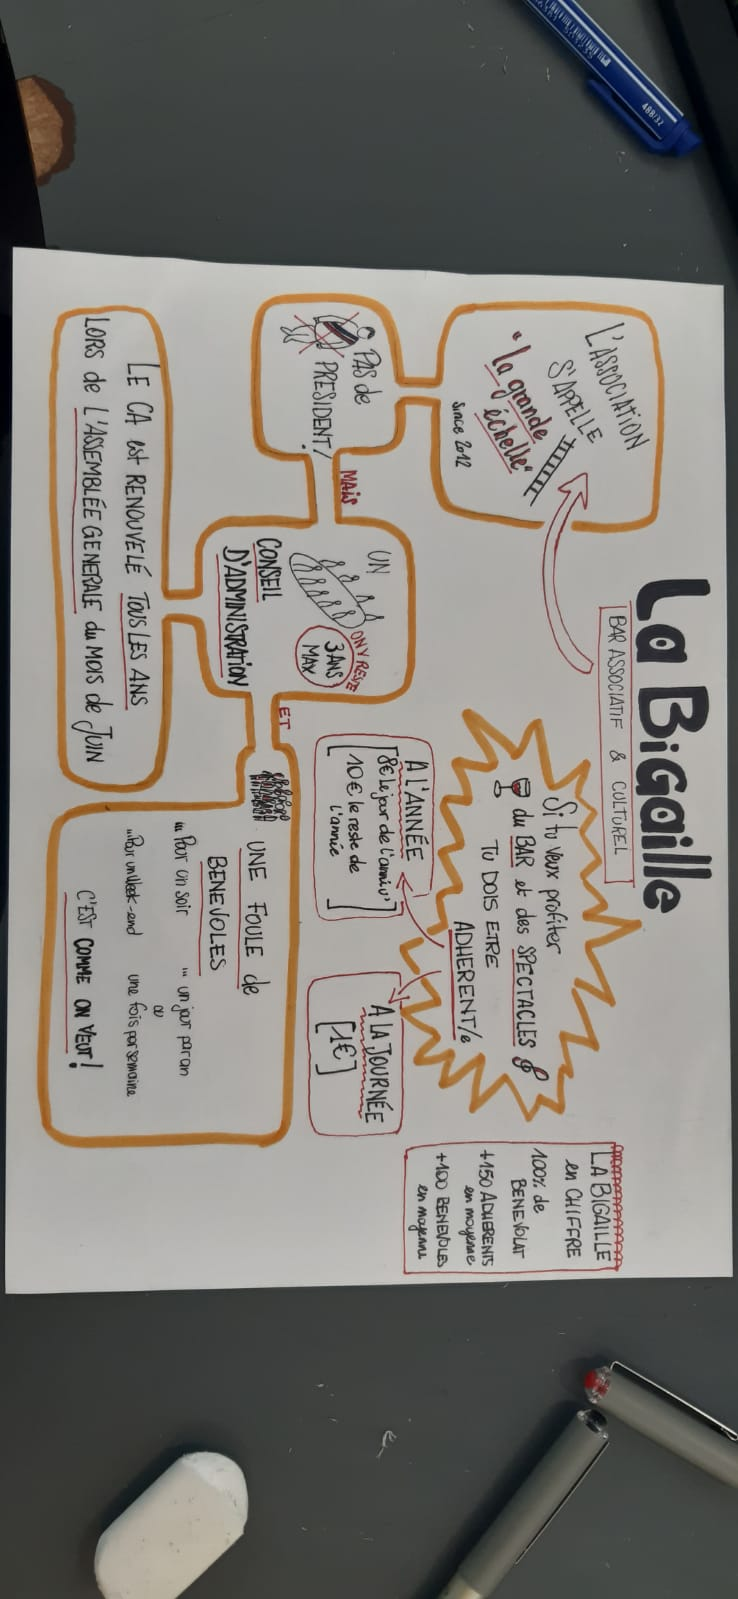 La BiGaille
BAR ASSOCIATIF & CULTUREL
L'ASSOCIATION
S'APPELLE
"la grande
échelle"
Since 2012
PAS de
PRESIDENT!
MAIS
UN
CONSEIL
D'ADMINISTRATION
ON Y RESTE
3 ANS
MAX
LE CA est RENOUVELÉ TOUS LES ANS
LORS de L'ASSEMBLÉE GENERALE du MOIS de JUIN
ET
UNE FOULE de
BENEVOLES
... Pour un soir ... un jour par an
ou
... Pour un Week-end une fois par semaine
C'EST COMME ON VEUT!
Si tu veux profiter
du BAR et des SPECTACLES
TU DOIS ETRE
ADHERENT/e
A L'ANNÉE
[8€ le jour de l'anniv'
10€ le reste de
l'année]
A LA JOURNÉE
[1€]
LA BIGAILLE
en CHIFFRE
100% de
BENEVOLAT
+150 ADHERENTS
en moyenne
+100 BENEVOLES
en moyenne
488/32